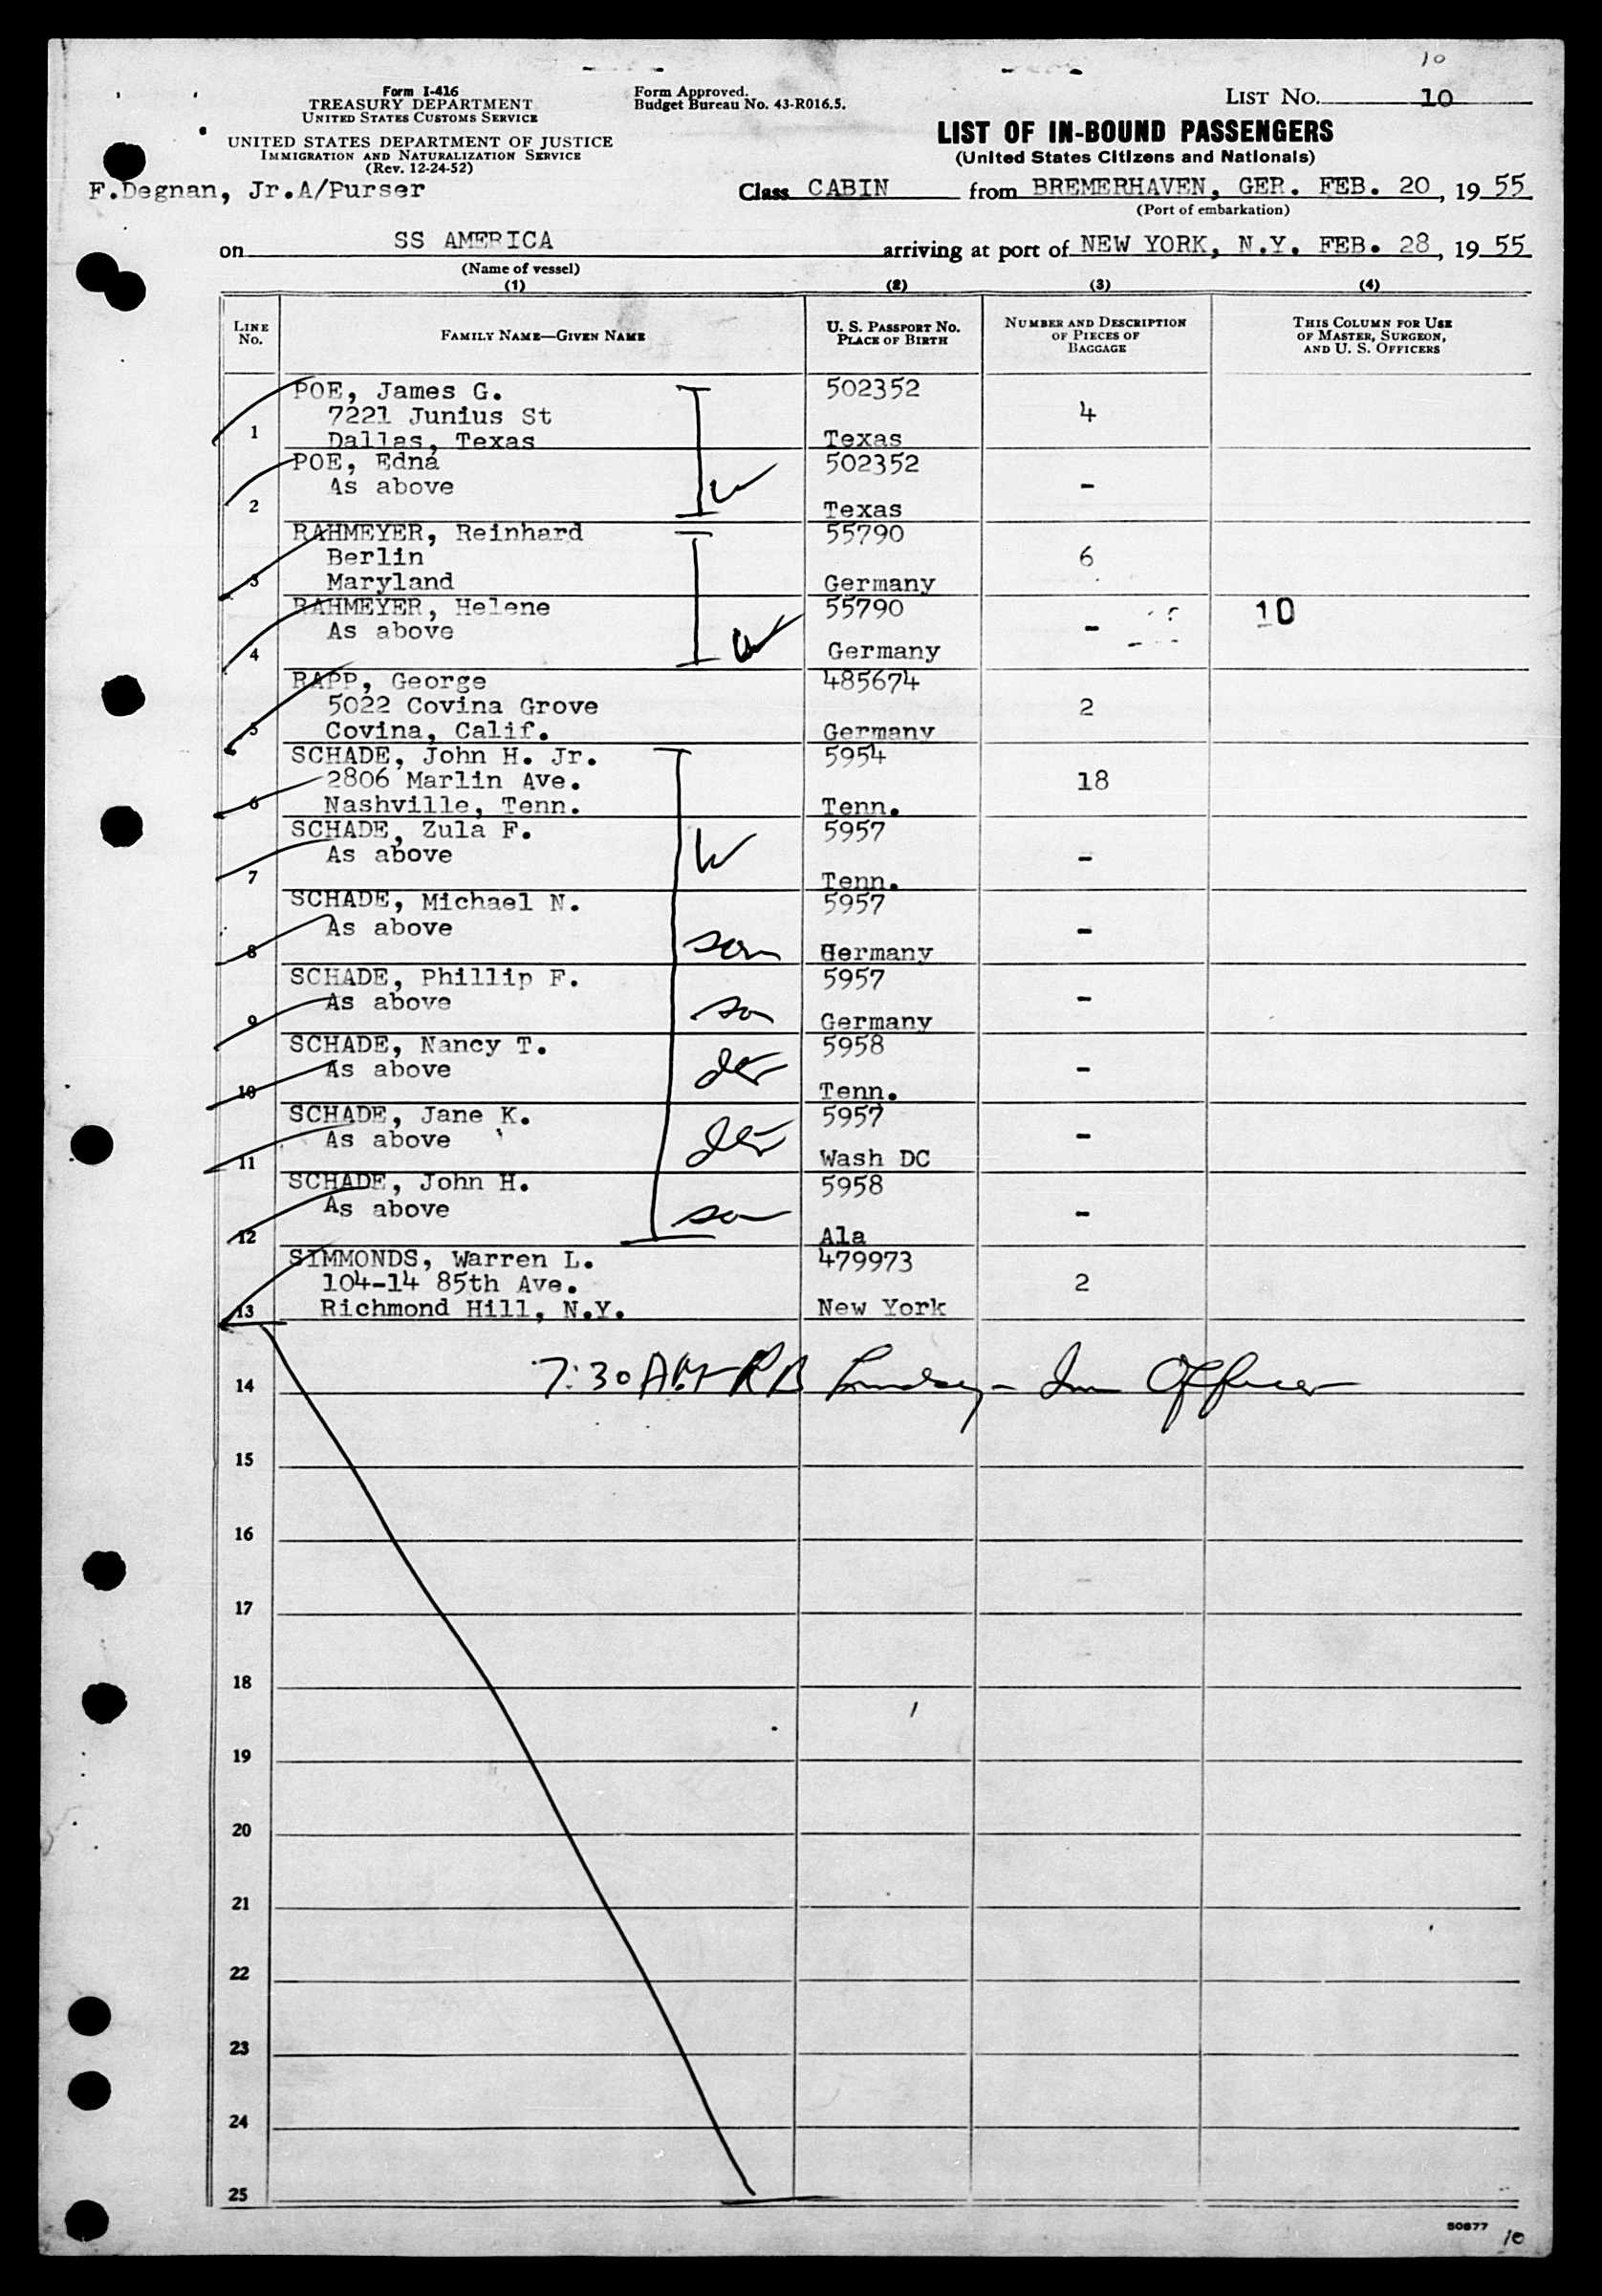 10
Form I-416
TREASURY DEPARTMENT
UNITED STATES CUSTOMS SERVICE
UNITED STATES DEPARTMENT OF JUSTICE
IMMIGRATION AND NATURALIZATION SERVICE
(Rev. 12-24-52)
F.Degnan, Jr.A/Purser
Form Approved.
Budget Bureau No. 43-R016.5.
LIST NO. 10
LIST OF IN-BOUND PASSENGERS
(United States Citizens and Nationals)
Class CABIN from BREMERHAVEN, GER. FEB. 20, 19 55
(Port of embarkation)
on SS AMERICA arriving at port of NEW YORK, N.Y. FEB. 28, 19 55
(Name of vessel)
(1) (2) (3) (4)
LINE NO. FAMILY NAME—GIVEN NAME U. S. PASSPORT NO. PLACE OF BIRTH NUMBER AND DESCRIPTION OF PIECES OF BAGGAGE THIS COLUMN FOR USE OF MASTER, SURGEON, AND U. S. OFFICERS
POE, James G. 502352
7221 Junius St 4
1 Dallas, Texas Texas
POE, Edna 502352
As above w -
2 Texas
RAHMEYER, Reinhard 55790
Berlin 6
3 Maryland Germany
RAHMEYER, Helene 55790 10
As above w -
4 Germany
RAPP, George 485674
5022 Covina Grove 2
5 Covina, Calif. Germany
SCHADE, John H. Jr. 5954
2806 Marlin Ave. 18
6 Nashville, Tenn. Tenn.
SCHADE, Zula F. 5957
As above W -
7 Tenn.
SCHADE, Michael N. 5957
As above son -
8 Germany
SCHADE, Phillip F. 5957
As above so -
9 Germany
SCHADE, Nancy T. 5958
As above der -
10 Tenn.
SCHADE, Jane K. 5957
As above der -
11 Wash DC
SCHADE, John H. 5958
As above son -
12 Ala
SIMMONDS, Warren L. 479973
104-14 85th Ave. 2
13 Richmond Hill, N.Y. New York
7:30 AM - R B Lindsey - Im Officer
14
15
16
17
18
19
20
21
22
23
24
25
50877
10